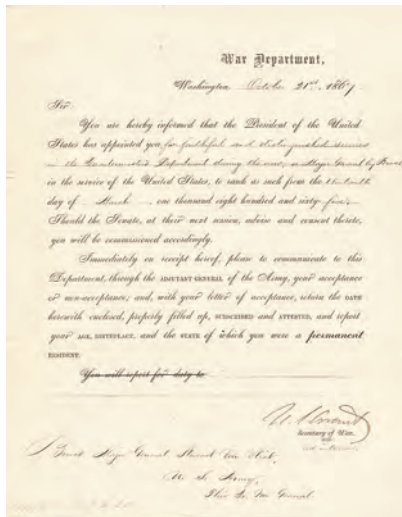 War Department,
Washington October 21st 1867.
Sir:
You are hereby informed that the President of the United
States has appointed you for faithful and distinguished services
in the Quartermaster's Department during the war, a Major General by Brevet
in the service of the United States, to rank as such from the thirteenth
day of March one thousand eight hundred and sixty-five.
Should the Senate, at their next session, advise and consent thereto,
you will be commissioned accordingly.
Immediately on receipt hereof, please to communicate to this
Department, through the ADJUTANT GENERAL of the Army, your acceptance
or non-acceptance; and, with your letter of acceptance, return the OATH
herewith enclosed, properly filled up, SUBSCRIBED and ATTESTED, and report
your AGE, BIRTHPLACE, and the STATE of which you were a permanent
RESIDENT.
You will report for duty to
Secretary of War.
ad interim
Brevet Major General Stewart Van Vliet,
U. S. Army,